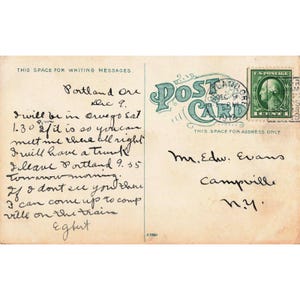 THIS SPACE FOR WRITING MESSAGES
POST CARD
THIS SPACE FOR ADDRESS ONLY
U.S. POSTAGE
Portland Ore
Dec 9.
I will be in Owego Sat
1.30 if it is so you can
meet me there all right
I will have a trunk
I leave Portland 9.35
tomorrow morning.
If I don't see you there
I can come up to camp
ville on the train
Egbert
Mr. Edw. Evans
Campville
N.Y.